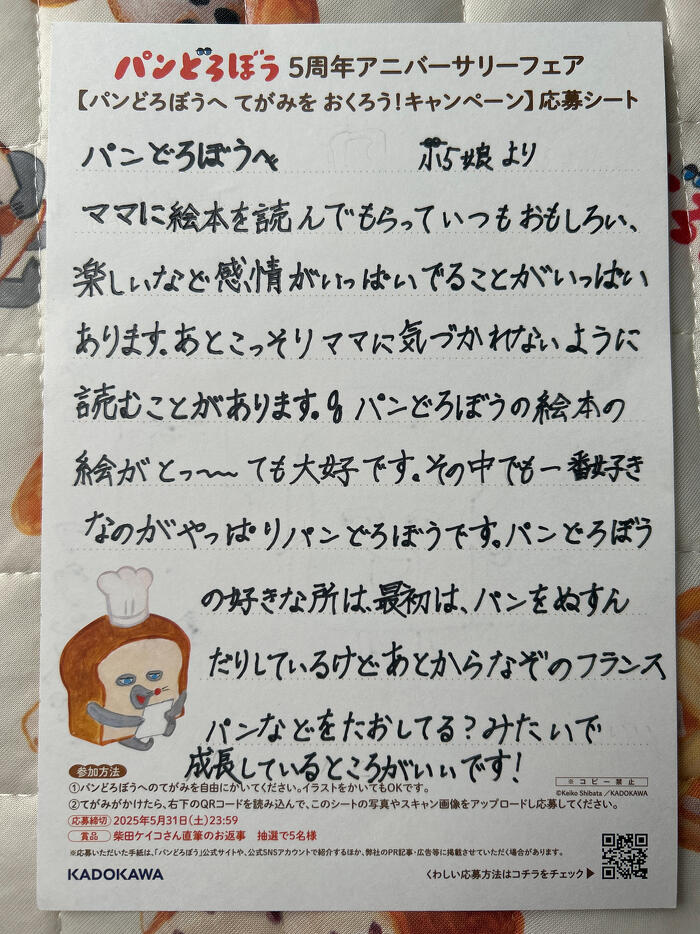 パンどろぼう 5周年アニバーサリーフェア
【パンどろぼうへ てがみを おくろう!キャンペーン】応募シート
パンどろぼうへ
娘より
ママに絵本を読んでもらっていつもおもしろい、
楽しいなど感情がいっぱいでることがいっぱい
あります。あとこっそりママに気づかれないように
読むことがあります。パンどろぼうの絵本の
絵がとっ〜〜ても大好です。その中でも一番好き
なのがやっぱりパンどろぼうです。パンどろぼう
の好きな所は、最初は、パンをぬすん
だりしているけどあとからなぞのフランス
パンなどをたおしてる?みたいで
成長しているところがいいです!
参加方法
①パンどろぼうへのてがみを自由にかいてください。イラストをかいてもOKです。
②てがみがかけたら、右下のQRコードを読み込んで、このシートの写真やスキャン画像をアップロードし応募してください。
※コピー禁止
©Keiko Shibata/KADOKAWA
応募締切 2025年5月31日(土)23:59
賞品 柴田ケイコさん直筆のお返事 抽選で5名様
※応募いただいた手紙は、「パンどろぼう」公式サイトや、公式SNSアカウントで紹介するほか、弊社のPR記事・広告等に掲載させていただく場合があります。
KADOKAWA
くわしい応募方法はコチラをチェック▶